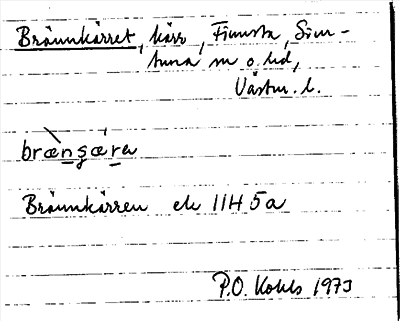 Brännkärret, kärr, Finnsta, Simtuna
tuna sn o. hd,
Västm. l.
bræ̀nçæ̀ra
Brännkärren ek 11H 5a
P.O. Kohls 1973